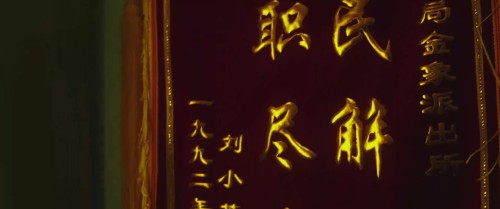 局金象派出所
民解
职尽
刘小
一九九二年